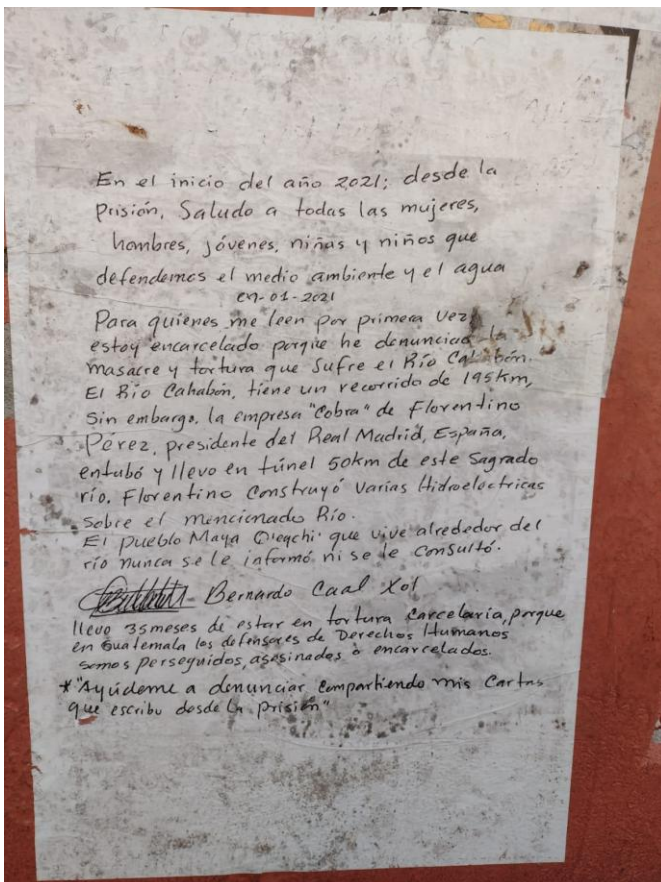 En el inicio del año 2021; desde la
prisión, Saludo a todas las mujeres,
hombres, jóvenes, niñas y niños que
defendemos el medio ambiente y el agua
en-01-2021
Para quienes me leen por primera vez,
estoy encarcelado porque he denunciado la
masacre y tortura que Sufre el Río Cahabón.
El Río Cahabón, tiene un recorrido de 195km,
Sin embargo, la empresa "Cobra" de Florentino
Pérez, presidente del Real Madrid, España,
entubó y llevo en túnel 50km de este Sagrado
río, Florentino Construyó Varias Hidroelectricas
Sobre el mencionado Río.
El pueblo Maya Q'eqchi' que vive alrededor del
río nunca se le informó ni se le consultó.
Bernardo Caal Xol
llevo 35 meses de estar en tortura Carcelaria, porque
en Guatemala los defensores de Derechos Humanos
somos perseguidos, asesinados o encarcelados.
*"Ayúdeme a denunciar, Compartiendo mis Cartas
que escribo desde la prisión"